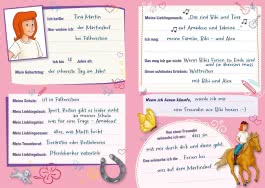 Ich heiße: Tina Martin
Hier wohne ich: der Martinshof
bei Falkenstein
Ich bin: Jahre alt.
Mein Geburtstag: der schönste Tag im Jahr!
Meine Lieblingsmusik: „Das sind Bibi und Tina
auf Amadeus und Sabrina"
Ich mag: meine Familie, Bibi – und Alex
Das mag ich gar nicht: Wenn Bibis Ferien zu Ende sind
und sie abreisen muss
Unser schönstes Erlebnis:
mit Bibi und Alex
Meine Schule: ist in Falkenstein
Mein Lieblingsfach: Sport, Reiten gibt es leider nicht
an meiner Schule
Mein Lieblingstier: was für eine Frage – Amadeus!
Mein Lieblingsessen: alles, was Mutti kocht
Mein Traumberuf: Tierärztin oder Reitlehrerin
Mein Lieblingsbuch: Pferdebücher natürlich
Wenn ich Ferien hätte, würde ich mir
eine Freundin wie Bibi hexen :-)
Von einer Freundin
wünsche ich mir: dass sie
mit mir durch dick und dünn geht.
Das wünsche ich dir: Ferien bei
uns auf dem Martinshof.